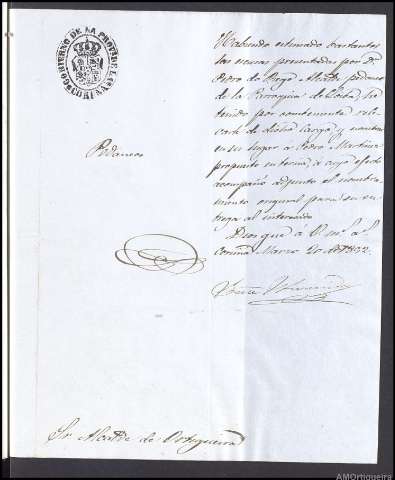 GOBIERNO DE LA PROVª DE LA CORUÑA
Habiendo estimado bastantes
las escusas presentadas por Dⁿ
Pedro de Bogo Alcalde pedaneo
de la Parroquia de, he
tenido por conveniente rele-
varle de dicho cargo y nombrar
en su lugar a Pedro Martinez
propuesto en terna, á cuyo efecto
acompaño adjunto el nombra-
miento original para su en-
trega al interesado.
Dios gue á V. mˢ aˢ
Coruña Marzo 20 de 1872.
Pedaneos
Sr. Alcalde de Ortigueira
AMOrtigueira